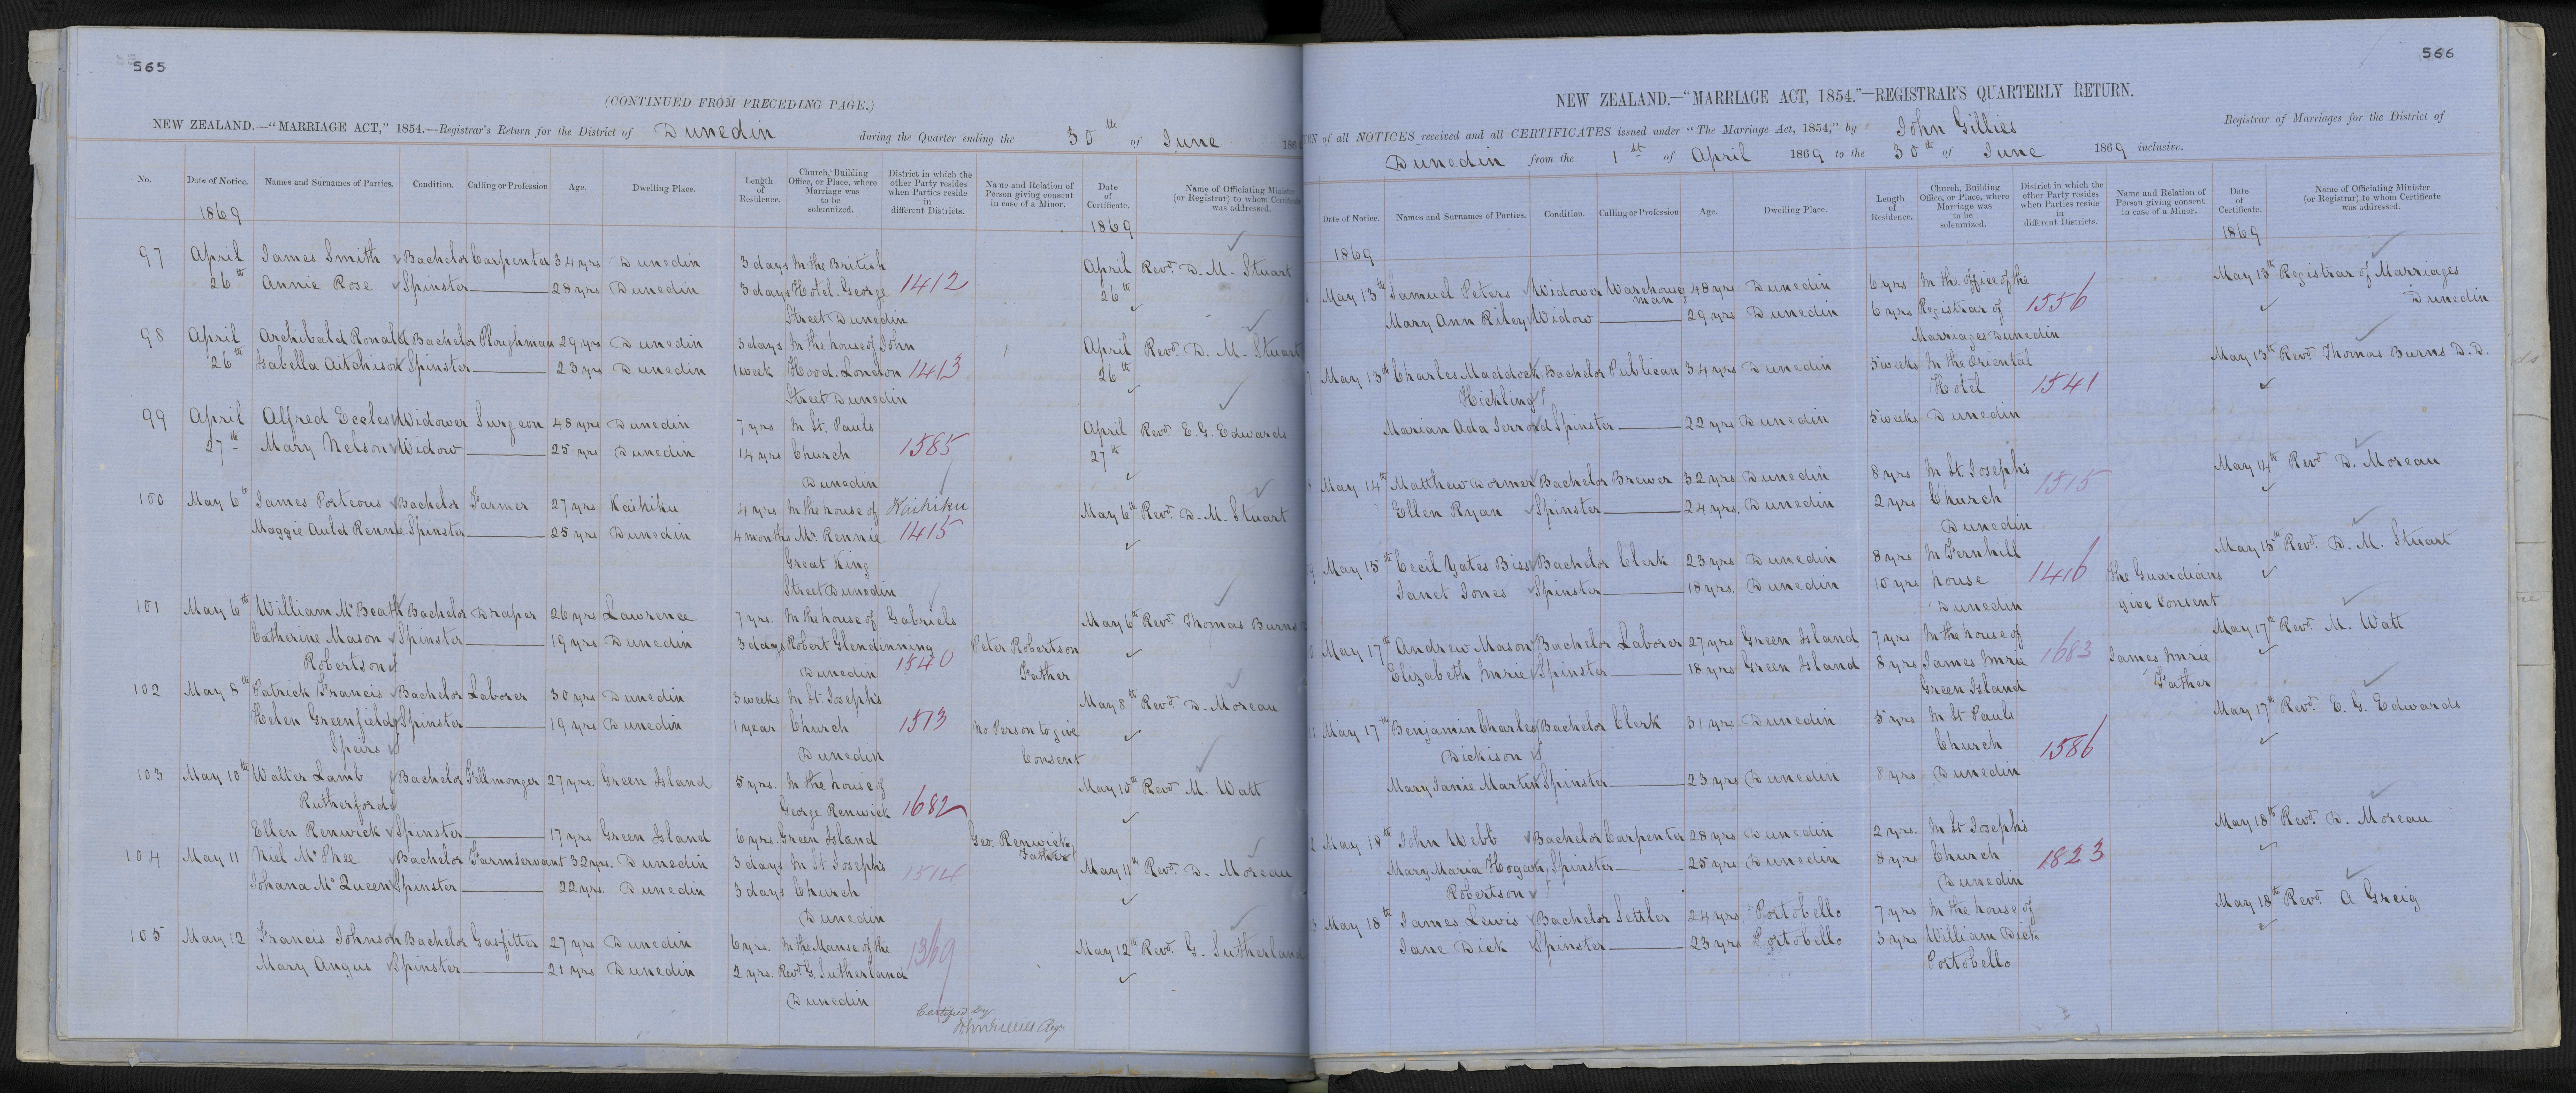 565
(CONTINUED FROM PRECEDING PAGE.)
NEW ZEALAND.—"MARRIAGE ACT," 1854.—Registrar's Return for the District of Dunedin during the Quarter ending the 30th of June 186
No. Date of Notice. Names and Surnames of Parties. Condition. Calling or Profession Age. Dwelling Place. Length of Residence. Church, Building Office, or Place, where Marriage was to be solemnized. District in which the other Party resides when Parties reside in different Districts. Name and Relation of Person giving consent in case of a Minor. Date of Certificate. Name of Officiating Minister (or Registrar) to whom Certificate was addressed.
1869 1869
97 April James Smith Bachelor Carpenter 34 yrs Dunedin 3 days In the British April Revd. D. M. Stuart
26th Annie Rose Spinster 28 yrs Dunedin 3 days Hotel. George 1412 26th
Street Dunedin
98 April Archibald Ronald Bachelor Ploughman 29 yrs Dunedin 3 days In the house of John April Revd. D. M. Stuart
26th Isabella Aitchison Spinster 23 yrs Dunedin 1 week Hood. London 1413 26th
Street Dunedin
99 April Alfred Eccles Widower Surgeon 48 yrs Dunedin 7 yrs In St. Pauls April Revd. E. G. Edwards
27th Mary Nelson Widow 25 yrs Dunedin 14 yrs Church 1585 27th
Dunedin
100 May 6th James Porteous Bachelor Farmer 27 yrs Kaihiku 4 yrs In the house of Kaihiku May 6th Revd. D. M. Stuart
Maggie Auld Rennie Spinster 25 yrs Dunedin 4 months Mr. Rennie 1415
Great King
Street Dunedin
101 May 6th William McBeath Bachelor Draper 26 yrs Lawrence 7 yrs. In the house of Gabriels May 6th Revd. Thomas Burns
Catherine Mason Spinster 19 yrs Dunedin 3 days Robert Glendinning Peter Robertson
Robertson Dunedin 1540 Father
102 May 8th Patrick Francis Bachelor Laborer 30 yrs Dunedin 3 weeks In St. Josephs May 8th Revd. D. Moreau
Helen Greenfield Spinster 19 yrs Dunedin 1 year Church 1513 No Person to give
Speirs Dunedin Consent
103 May 10th Walter Lamb Bachelor Fellmonger 27 yrs. Green Island 5 yrs. In the house of May 10th Revd. M. Watt
Rutherford George Renwick 1682
Ellen Renwick Spinster 17 yrs Green Island 6 yrs. Green Island Geo. Renwick
Father
104 May 11 Niel McPhee Bachelor Farmservant 32 yrs. Dunedin 3 days In St Josephs 1514 May 11th Revd. D. Moreau
Johana McQueen Spinster 22 yrs. Dunedin 3 days Church
Dunedin
105 May 12 Francis Johnson Bachelor Gasfitter 27 yrs Dunedin 6 yrs. In the Manse of the 1369 May 12th Revd. G. Sutherland
Mary Angus Spinster 21 yrs Dunedin 2 yrs. Revd. G. Sutherland
Dunedin
Certified by
John Gillies Regr
566
NEW ZEALAND.—"MARRIAGE ACT, 1854."—REGISTRAR'S QUARTERLY RETURN.
RN of all NOTICES received and all CERTIFICATES issued under "The Marriage Act, 1854," by John Gillies Registrar of Marriages for the District of
Dunedin from the 1st of April 1869 to the 30th of June 1869 inclusive.
Date of Notice. Names and Surnames of Parties. Condition. Calling or Profession Age. Dwelling Place. Length of Residence. Church, Building Office, or Place, where Marriage was to be solemnized. District in which the other Party resides when Parties reside in different Districts. Name and Relation of Person giving consent in case of a Minor. Date of Certificate. Name of Officiating Minister (or Registrar) to whom Certificate was addressed.
1869 1869
May 13th Samuel Peters Widower Warehouse 48 yrs Dunedin 6 yrs In the office of the May 13th Registrar of Marriages
man
Mary Ann Riley Widow 29 yrs Dunedin 6 yrs Registrar of 1556 Dunedin
Marriages Dunedin
May 13th Charles Maddock Bachelor Publican 34 yrs Dunedin 5 weeks In the Oriental May 13th Revd. Thomas Burns D.D.
Hickling Hotel 1541
Marian Ada Jerrold Spinster 22 yrs Dunedin 5 weeks Dunedin
May 14th Matthew Dormer Bachelor Brewer 32 yrs Dunedin 8 yrs In St Josephs 1515 May 14th Revd. D. Moreau
Ellen Ryan Spinster 24 yrs. Dunedin 2 yrs Church
Dunedin
May 15th Cecil Yates Biss Bachelor Clerk 23 yrs Dunedin 8 yrs In Fernhill May 15th Revd. D. M. Stuart
Janet Jones Spinster 18 yrs. Dunedin 10 yrs house 1416 The Guardians
Dunedin give Consent
May 17th Andrew Mason Bachelor Laborer 27 yrs Green Island 7 yrs In the house of May 17th Revd. M. Watt
Elizabeth Imrie Spinster 18 yrs Green Island 8 yrs James Imrie 1683 James Imrie
Green Island Father
May 17th Benjamin Charles Bachelor Clerk 31 yrs Dunedin 5 yrs In St Pauls May 17th Revd. E. G. Edwards
Dickison Church 1586
Mary Janie Martin Spinster 23 yrs Dunedin 8 yrs Dunedin
May 18th John Webb Bachelor Carpenter 28 yrs Dunedin 2 yrs. In St Josephs May 18th Revd. D. Moreau
Mary Maria Hogan Spinster 25 yrs Dunedin 8 yrs Church 1823
Robertson Dunedin
May 18th James Lewis Bachelor Settler 24 yrs Portobello 7 yrs In the house of May 18th Revd. A Greig
Jane Dick Spinster 23 yrs Portobello 3 yrs William Dick
Portobello